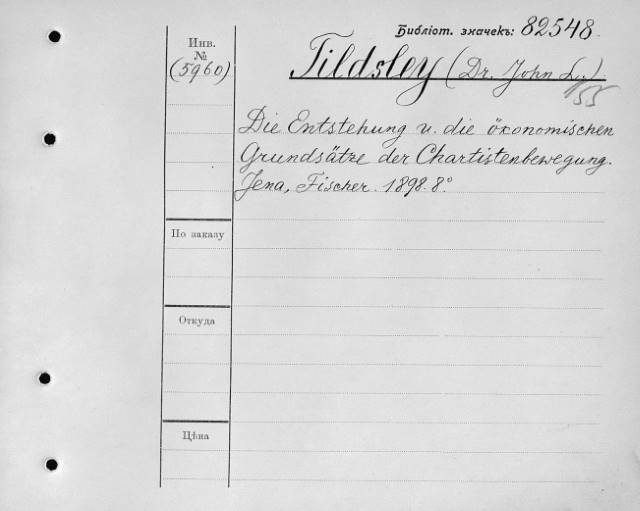 Библіот. значекъ: 82548.
Инв.
№
(5960)
Tildsley (Dr. John L.)
55
Die Entstehung u. die ökonomischen
Grundsätze der Chartistenbewegung.
Jena, Fischer. 1898. 8°
По заказу
Откуда
Цѣна